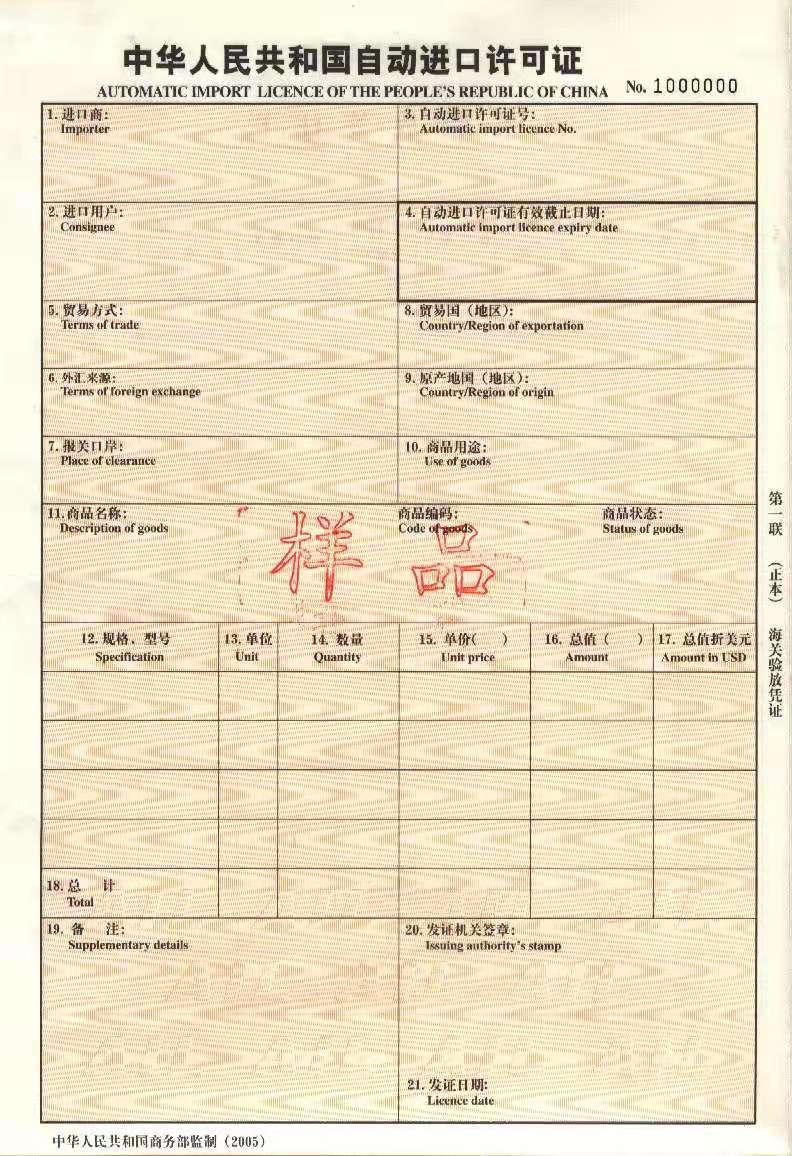 中华人民共和国自动进口许可证
AUTOMATIC IMPORT LICENCE OF THE PEOPLE'S REPUBLIC OF CHINA No. 1000000
1. 进口商:
Importer
3. 自动进口许可证号:
Automatic import licence No.
2. 进口用户:
Consignee
4. 自动进口许可证有效截止日期:
Automatic import licence expiry date
5. 贸易方式:
Terms of trade
8. 贸易国（地区）:
Country/Region of exportation
6. 外汇来源:
Terms of foreign exchange
9. 原产地国（地区）:
Country/Region of origin
7. 报关口岸:
Place of clearance
10. 商品用途:
Use of goods
11. 商品名称:
Description of goods
商品编码:
Code of goods
商品状态:
Status of goods
样品
12. 规格、型号
Specification
13. 单位
Unit
14. 数量
Quantity
15. 单价( )
Unit price
16. 总值( )
Amount
17. 总值折美元
Amount in USD
18. 总 计
Total
19. 备 注:
Supplementary details
20. 发证机关签章:
Issuing authority's stamp
21. 发证日期:
Licence date
中华人民共和国商务部监制（2005）
第一联（正本）海关验放凭证